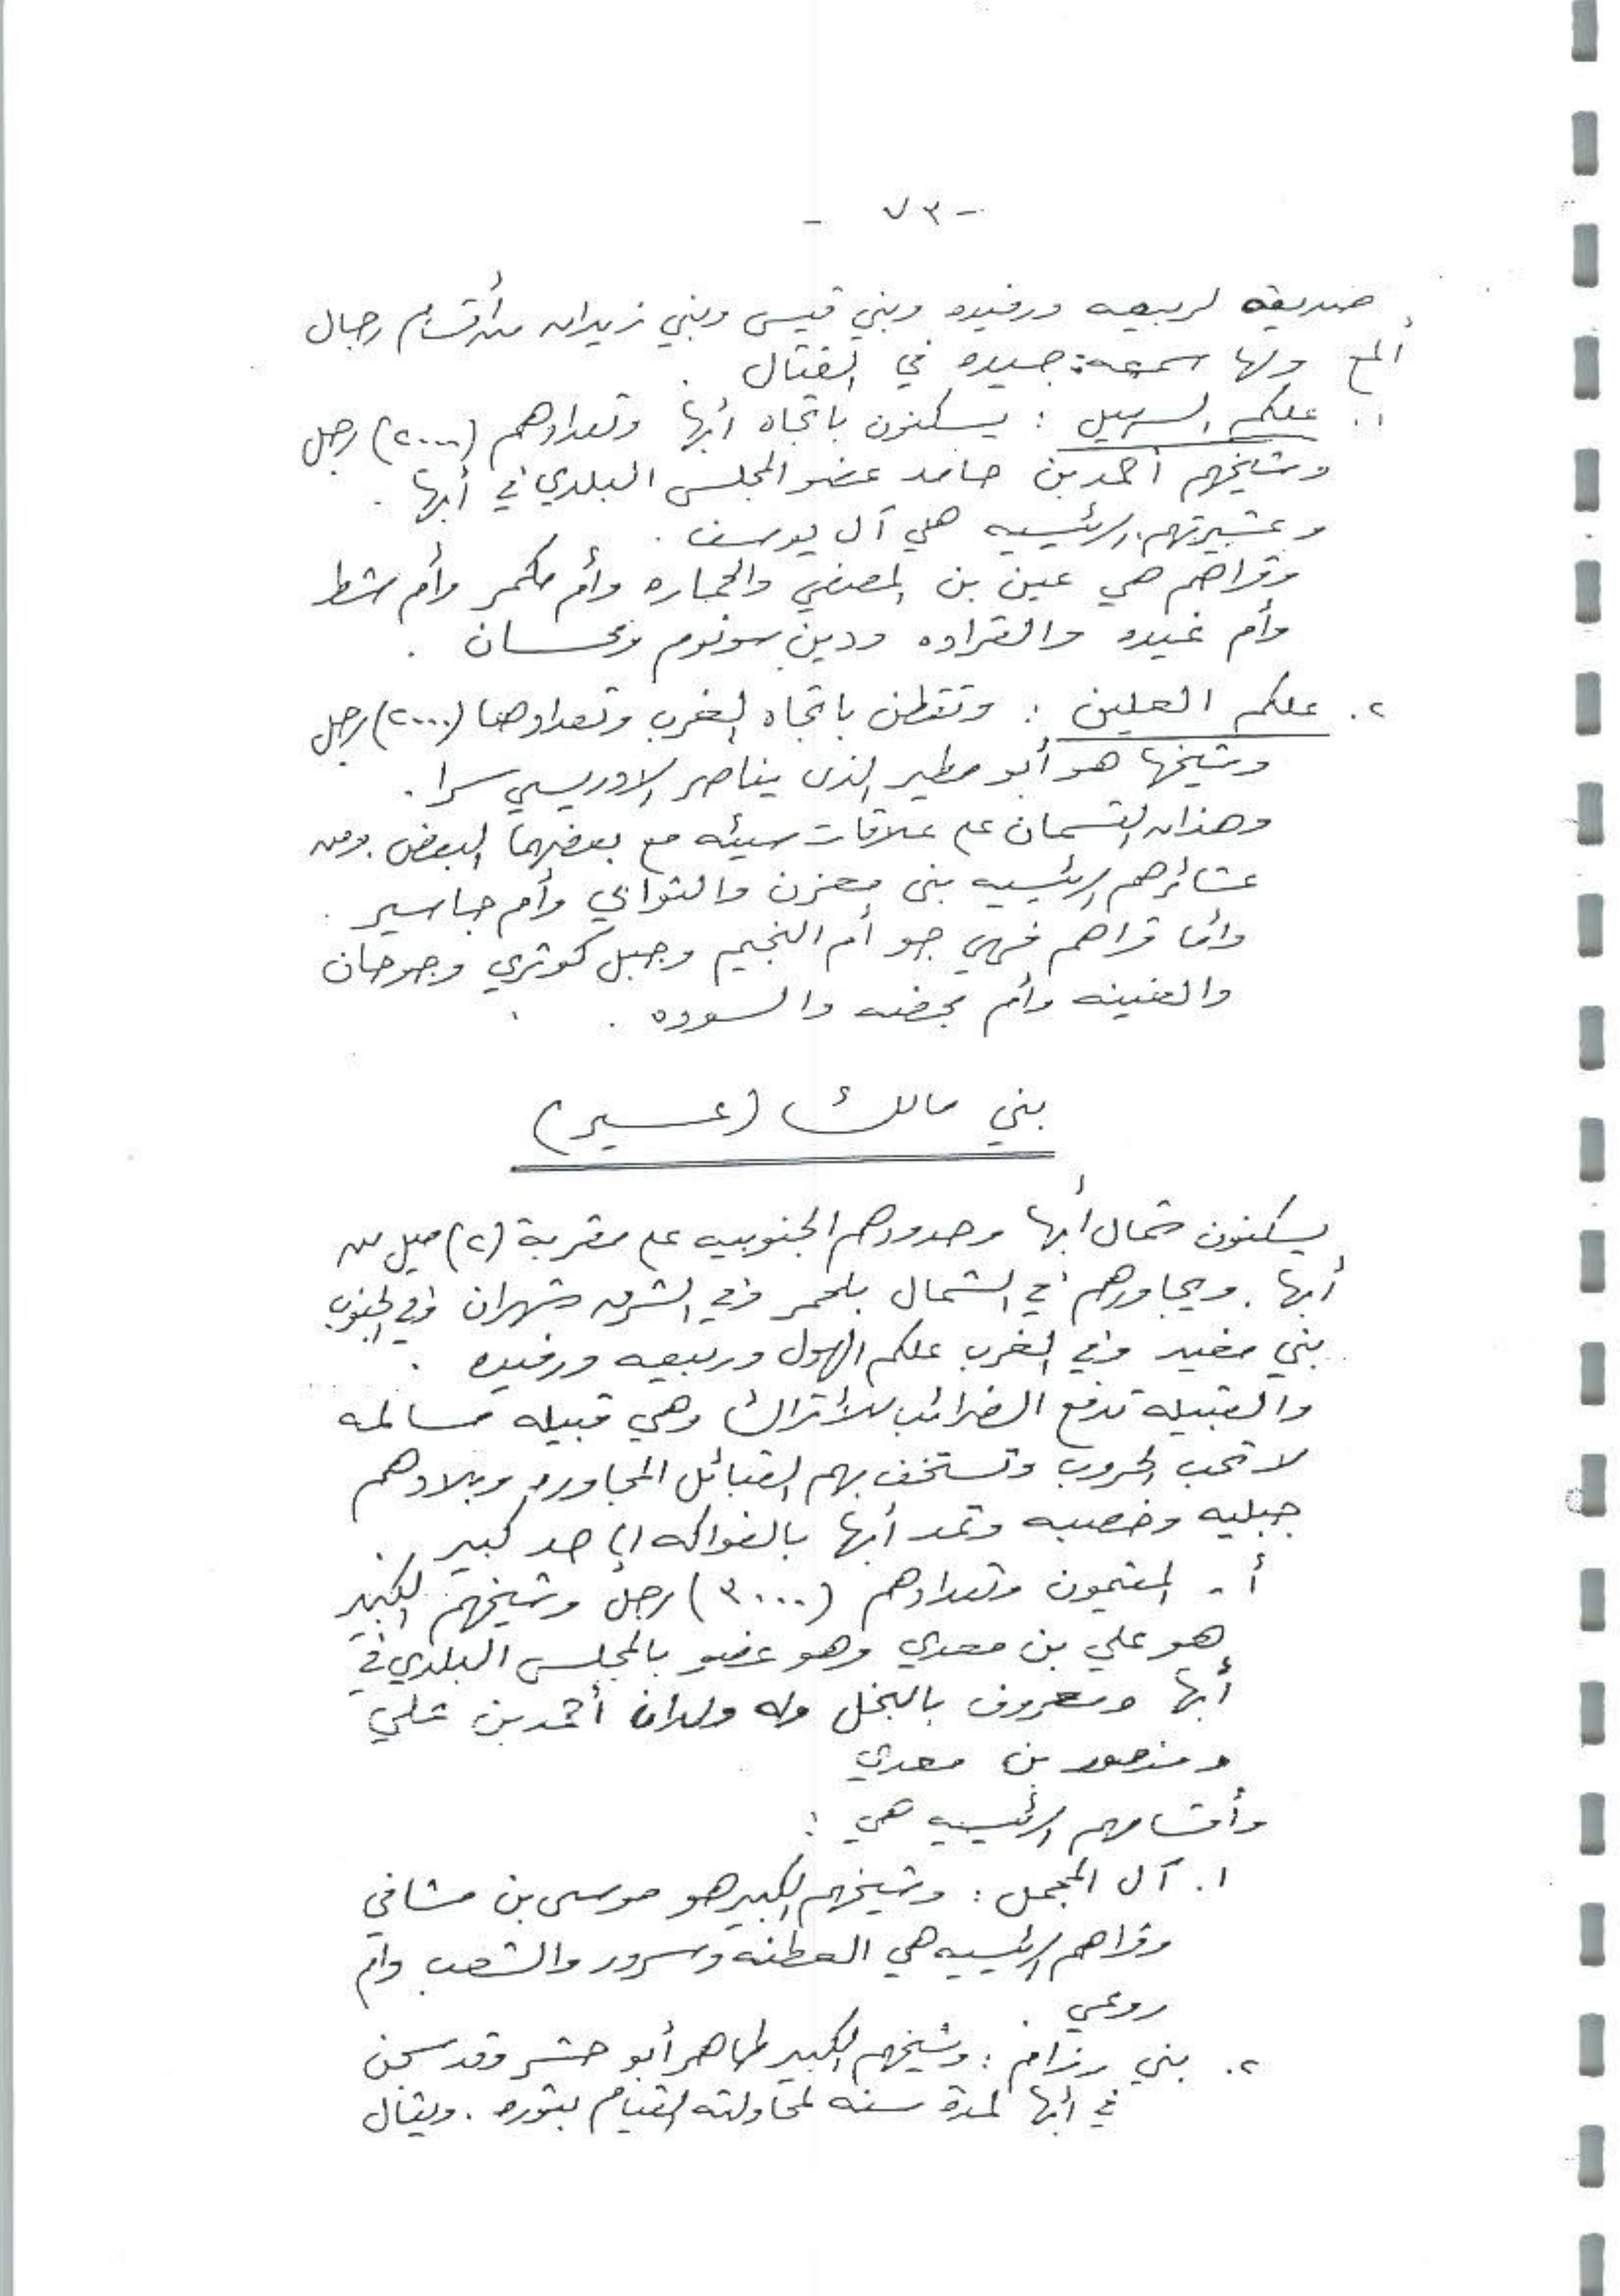 - ٧٣ -
صديقه لربيعه ورفيده وبني قيس وبني زيدان من أقسام رجال
ألمع ولها سمعه جيده في القتال .
١. علكم السهيل : يسكنون باتجاه أبها وتعدادهم (٢٠٠٠) رجل
وشيخهم أحمد بن حامد عضو المجلس البلدي في أبها .
وعشيرتهم الرئيسيه هي آل يوسف .
وقراهم هي عين بن المصفي والحجاره وأم مكمر وأم شط
وأم غيده والقراده ودين سونوم وغسان .
٢. علكم العلين : وتقطن باتجاه الغرب وتعدادها (٢٠٠٠) رجل
وشيخها هو أبو مطير الذى يناصر الادريسي سرا .
وهذان القسمان على علاقات سيئه مع بعضهما البعض . ومن
عشائرهم الرئيسيه بنى معزن والتوابي وأم جباسير .
وأما قراهم فهي جو أم النجيم وجبل كوثري وجوحان
والعنينه وأم بحضه والسوده .
بني مالك (عسير)
يسكنون شمال أبها وحدودهم الجنوبيه على مقربة (٢) ميل من
أبها . ويجاورهم في الشمال بلحمر وفي الشرق شهران وفي الجنوب
بني مغيد وفي الغرب علكم الهول وربيعه ورفيده .
والقبيله تدفع الضرائب للأتراك وهي قبيله مسالمه
لا تحب الحروب وتستخف بهم القبائل المجاوره وبلادهم
جبليه وخصبه وتمد أبها بالفواكه الى حد كبير .
أ - المقيمون وتعدادهم (٣٠٠٠) رجل وشيخهم الكبير
هو علي بن معدي وهو عضو بالمجلس البلدي في
أبها ومعروف بالبخل وله ولدان أحمد بن علي
ومنصور بن معدي
وأقسامهم الرئيسيه هي :
١. آل المجمل : وشيخهم الكبير هو موسى بن مشافي
وقراهم الرئيسيه هي العطفه وسرور والشعب وأم
روعي .
٢. بني رزام : وشيخهم الكبير طاهر أبو حشر وقد سجن
في أبها لمدة سنه لمحاولته القيام بثوره . ويقال